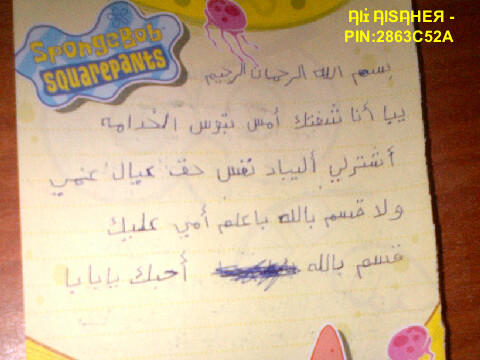 Ali AlSAHER -
PIN:2863C52A
SpongeBob
SQUAREPANTS
بسم الله الرحمان الرحيم
يبا أنا شفتك أمس تبوس الخدامه
أشترلي أليباد نفس حق عيال عمي
ولا قسم بالله باعلم أمي عليك
قسم بالله أحبك يابابا